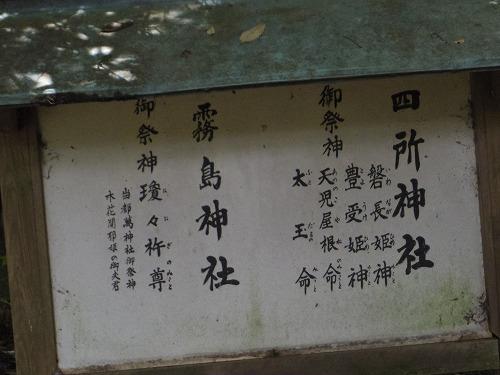 四所神社
御祭神
磐長姫神
豊受姫神
天児屋根命
太玉命
霧島神社
御祭神
瓊々杵尊
当都萬神社御祭神
木花開耶姫の御夫君